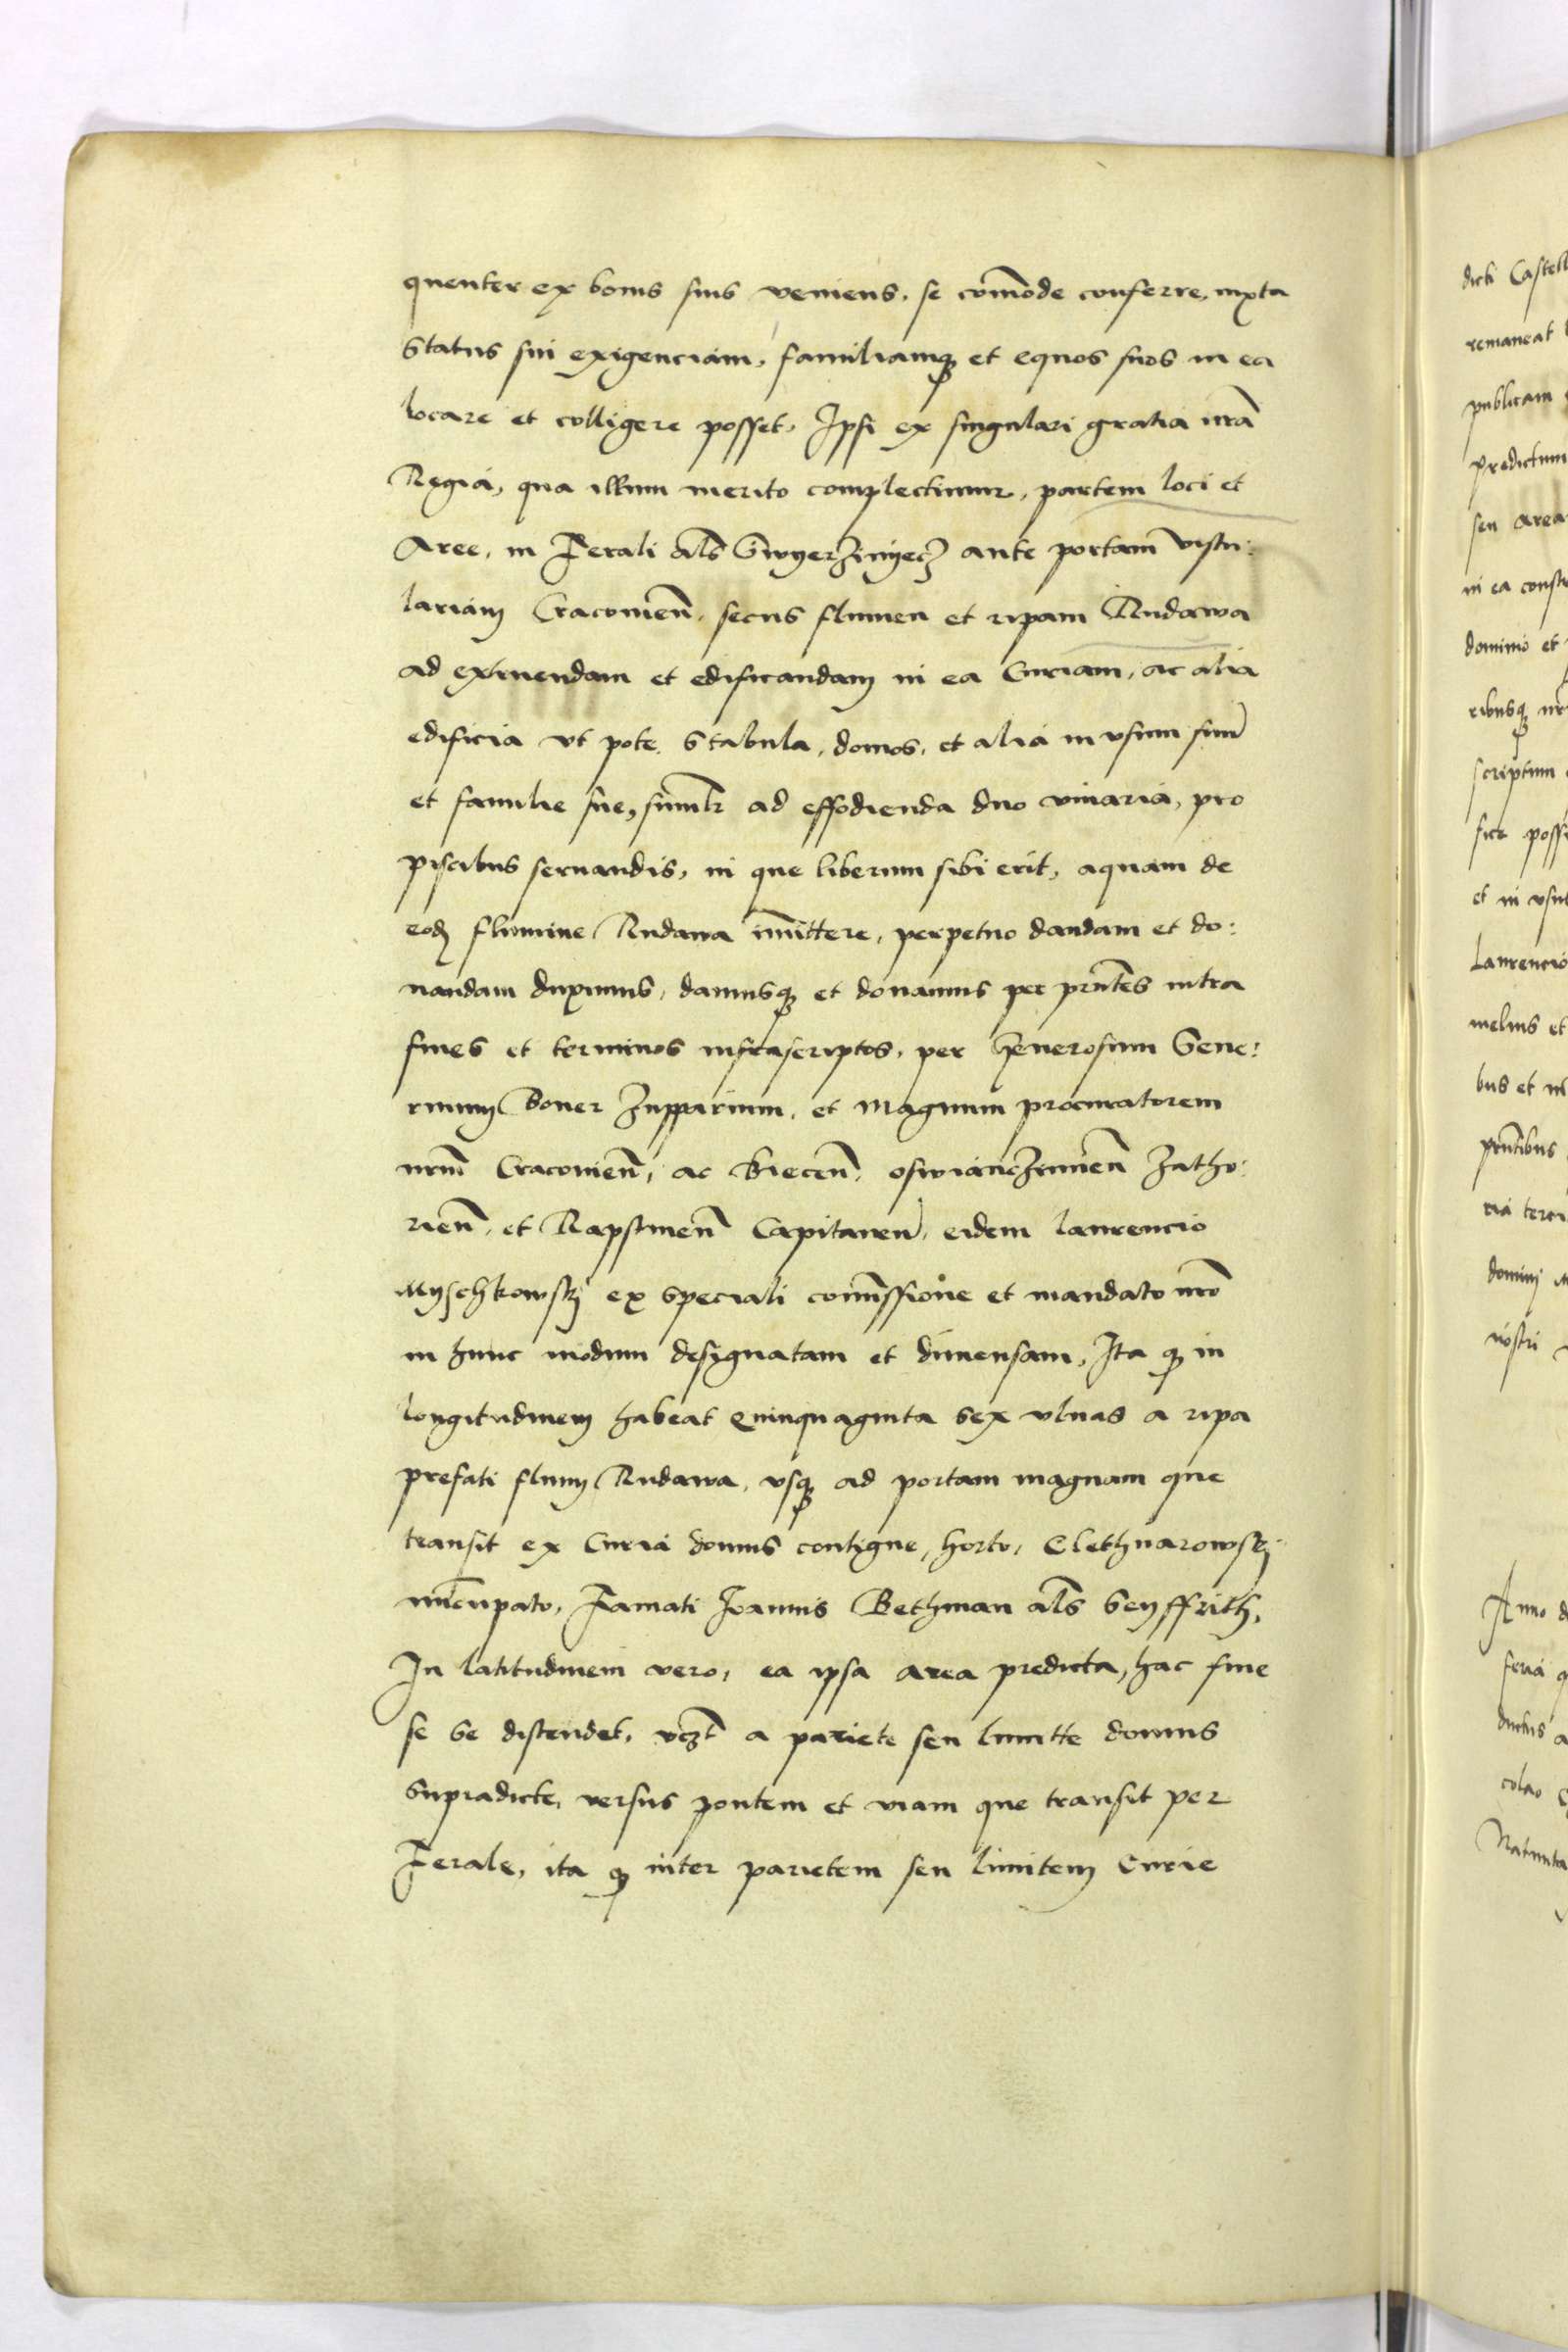 quenter ex bonis suis veniens, se com̄ode conferre, iuxta
Status sui exigenciam, familiamq; et equos suos in ea
locare et colligere posset, Ipsi ex singulari gratia nr̄a
Regia, qua illum merito complectimur, partem loci et
Aree, in Ferali al̄s Swyerzinyecz ante portam Vistu:
lariam Cracovien̄, secus flumen et ripam Rudawa
ad extruendam et edificandam in ea Curiam, ac alia
edificia vt pote Stabula, domos, et alia in vsum suum
et familie sue, similr̄ ad effodienda duo vivaria, pro
piscibus servandis, in que liberum sibi erit, aquam de
eod flumine Rudawa im̄ittere, perpetuo dandam et do:
nandam duximus, damusq; et donamus per pn̄tes intra
fines et terminos infrascriptos, per Generosum Seue:
rinum Boner Zupparium, et Magnum procuratorem
nr̄m Cracovien̄, ac Biecen̄, osvianczimien̄ Zatho:
rien̄, et Rapstinen̄ Capitaneū, eidem laurencio
Myschkowsky ex speciali com̄issione et mandato nr̄o
in hunc modum designatam et dimensam, Ita q; in
longitudinem habeat Quinquaginta sex vlnas a ripa
prefati flumi Rudawa, vsq; ad portam magnam que
transit ex Curia domus contigue, horto, Clethnarowsky
nūcupato, Famati Ioannis Bethman al̄s Seyffrith,
In latitudinem vero, ea ipsa area predicta, hac fine
se se distendet, vczt̄ a pariete seu limitte domus
Supradicte, versus pontem et viam que transit per
Ferale, ita q; inter parietem seu limitem Curie
dicti Castell
remaneat
publicam
predictum
seu area
in ea constr
dominio et
ribusq; nr̄
scriptum
sicr posse
et in vsu
Laurencio
melius et
bus et
pn̄tibus
ria terci
dominj
nostri
Anno d
feria q
ductus a
colao
Natunta